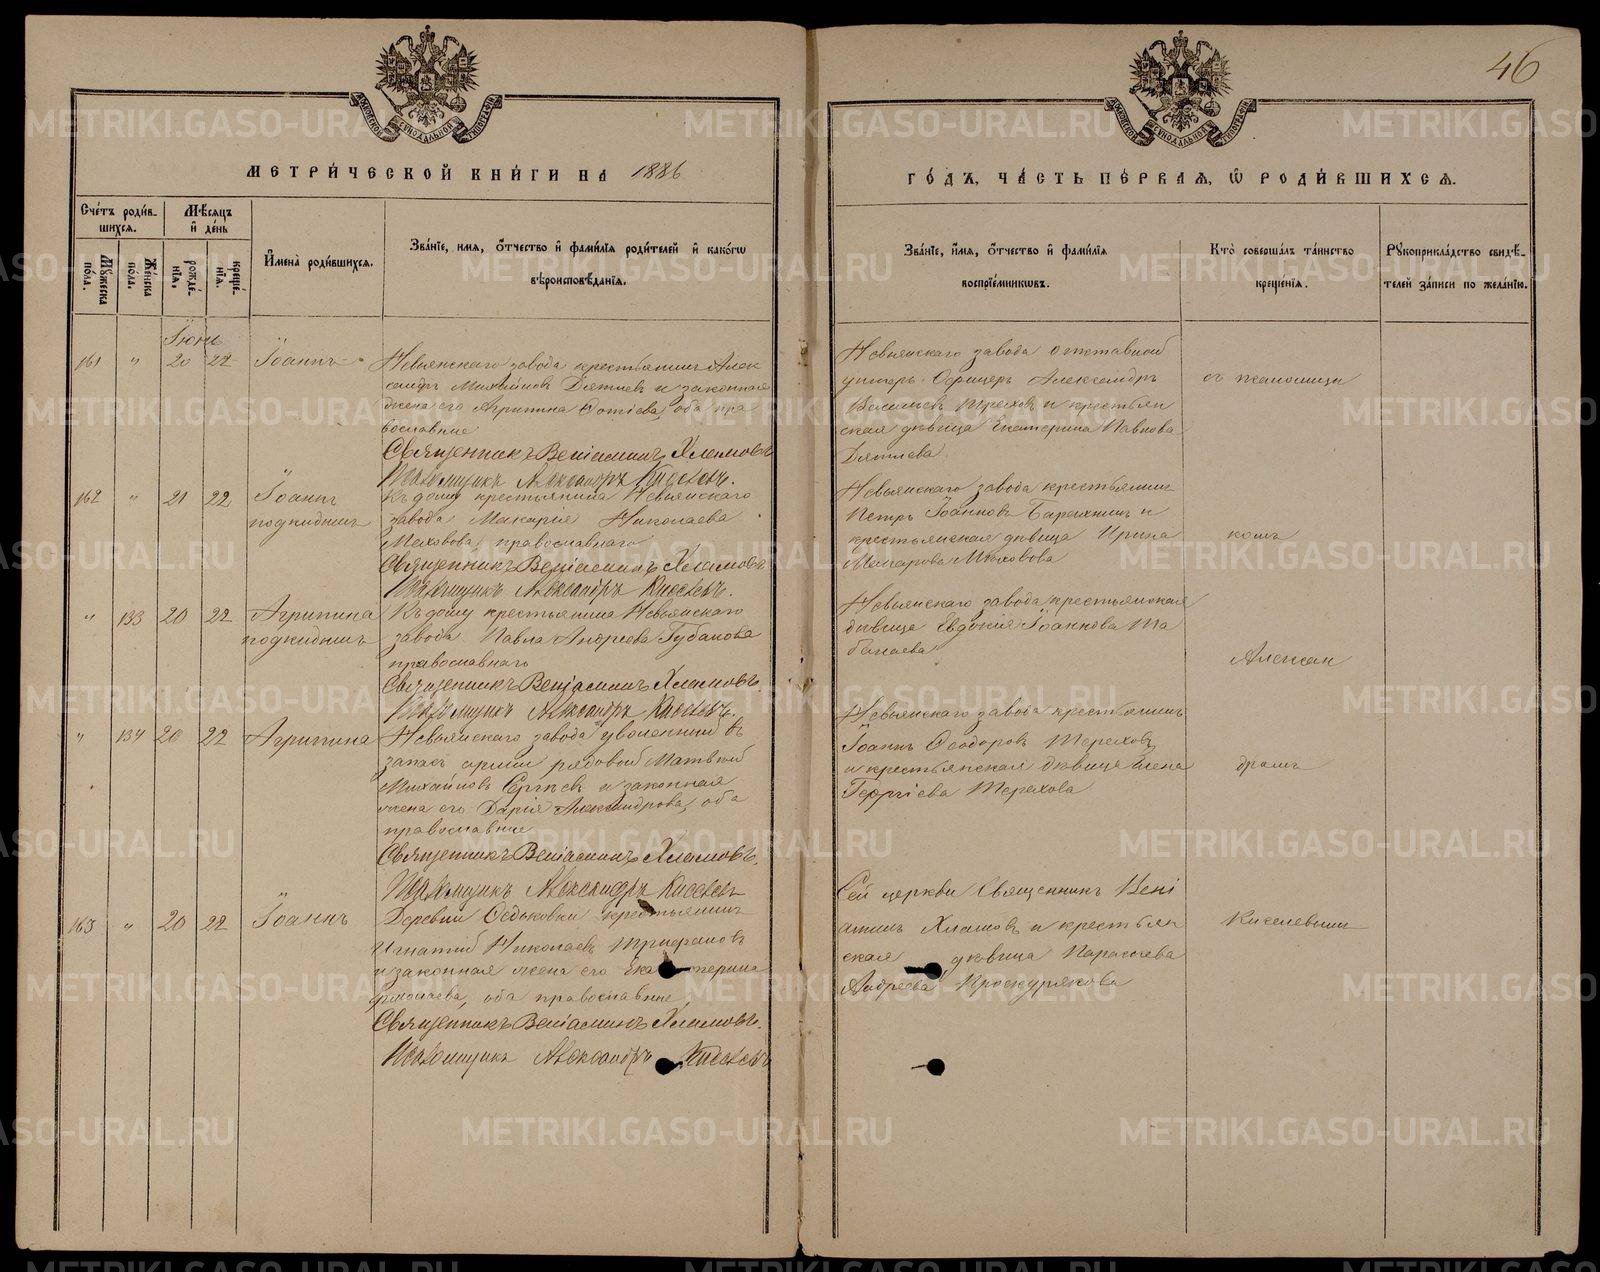 46
МОСКОВСКОЙ СѴНОДАЛЬНОЙ ТИПОГРАФІИ
МОСКОВСКОЙ СѴНОДАЛЬНОЙ ТИПОГРАФІИ
МЕТРИ́ЧЕСКОЙ КНИ́ГИ НА 1886
ГО́ДЪ, ЧА́СТЬ ПЕ́РВАЯ, Ѡ РОДИ́ВШИХСЯ.
Сче́тъ роди́в-
шихся.
Мѣ́сяцъ
и҆ де́нь
Му́жеска
по́ла.
Же́нска
по́ла.
рожде́-
нїѧ.
креще́-
нїѧ.
И҆мена̀ роди́вшихсѧ.
Зва́нїе, и́мѧ, ѻ҆́тчество и҆ фами́лїѧ роди́телей и҆ како́гѡ
вѣроисповѣ́данїѧ.
Зва́нїе, и́мѧ, ѻ҆́тчество и҆ фами́лїѧ
воспрїе́мникѡвъ.
Кто̀ соверша́лъ та́инство
креще́нїѧ.
Рꙋкоприкла́дство свидѣ́-
телей за́писи по жела́нїю.
Іюнь
161 " 20 22 Іоаннъ
Невьянскаго завода крестьянинъ Алек
сандръ Михайловъ Дятлев и законная
жена его Агрипина Фотіева, оба пра
вославные
Священникъ Веніаминъ Хламовъ.
Псаломщикъ Александръ Киселевъ.
Невьянскаго завода отставной
унтеръ-Офицеръ Александръ
Васильевъ Тереховъ и крестьян
ская дѣвица Екатерина Павлова
Дятлева.
съ псаломщи
162 " 21 22 Іоаннъ
подкидышъ
Къ дому крестьянина Невьянскаго
завода Макарія Николаева
Меховова, православнаго
Священникъ Веніаминъ Хламовъ.
Псаломщикъ Александръ Киселевъ.
Невьянскаго завода крестьянинъ
Петръ Іоанновъ и
крестьянская дѣвица Ирина
Макарова Мѣховова
комъ
" 133 20 22 Агрипина
подкидышъ
Къ дому крестьянина Невьянскаго
завода Павла Андреева Губанова
православнаго
Священникъ Веніаминъ Хламовъ.
Псаломщикъ Александръ Киселевъ.
Невьянскаго завода крестьянская
дѣвица Евдокія Іоаннова Ша
Алексан
" 134 20 22 Агрипина
Невьянскаго завода уволенный въ
запасъ арміи рядовой Матвѣй
Михайловъ Сергѣев и законная
жена его Дарія Александрова, оба
православные
Священникъ Веніаминъ Хламовъ.
Псаломщикъ Александръ Киселевъ
Невьянскаго завода крестьянинъ
Іоаннъ Ѳеодоровъ Тереховъ
и крестьянская дѣвица Елена
Георгіева Терехова
дромъ
163 " 20 22 Іоаннъ
Деревни Ѳедьковки крестьянинъ
Игнатій Николаевъ Трифановъ
и законная жена его Екатерина
оба православные,
Священникъ Веніаминъ Хламовъ.
Псаломщикъ Александръ Киселевъ
Сей церкви Священникъ Вені
аминъ Хламовъ и крестьян
ская дѣвица Параскева
Андреева Проскурякова
Киселевымъ